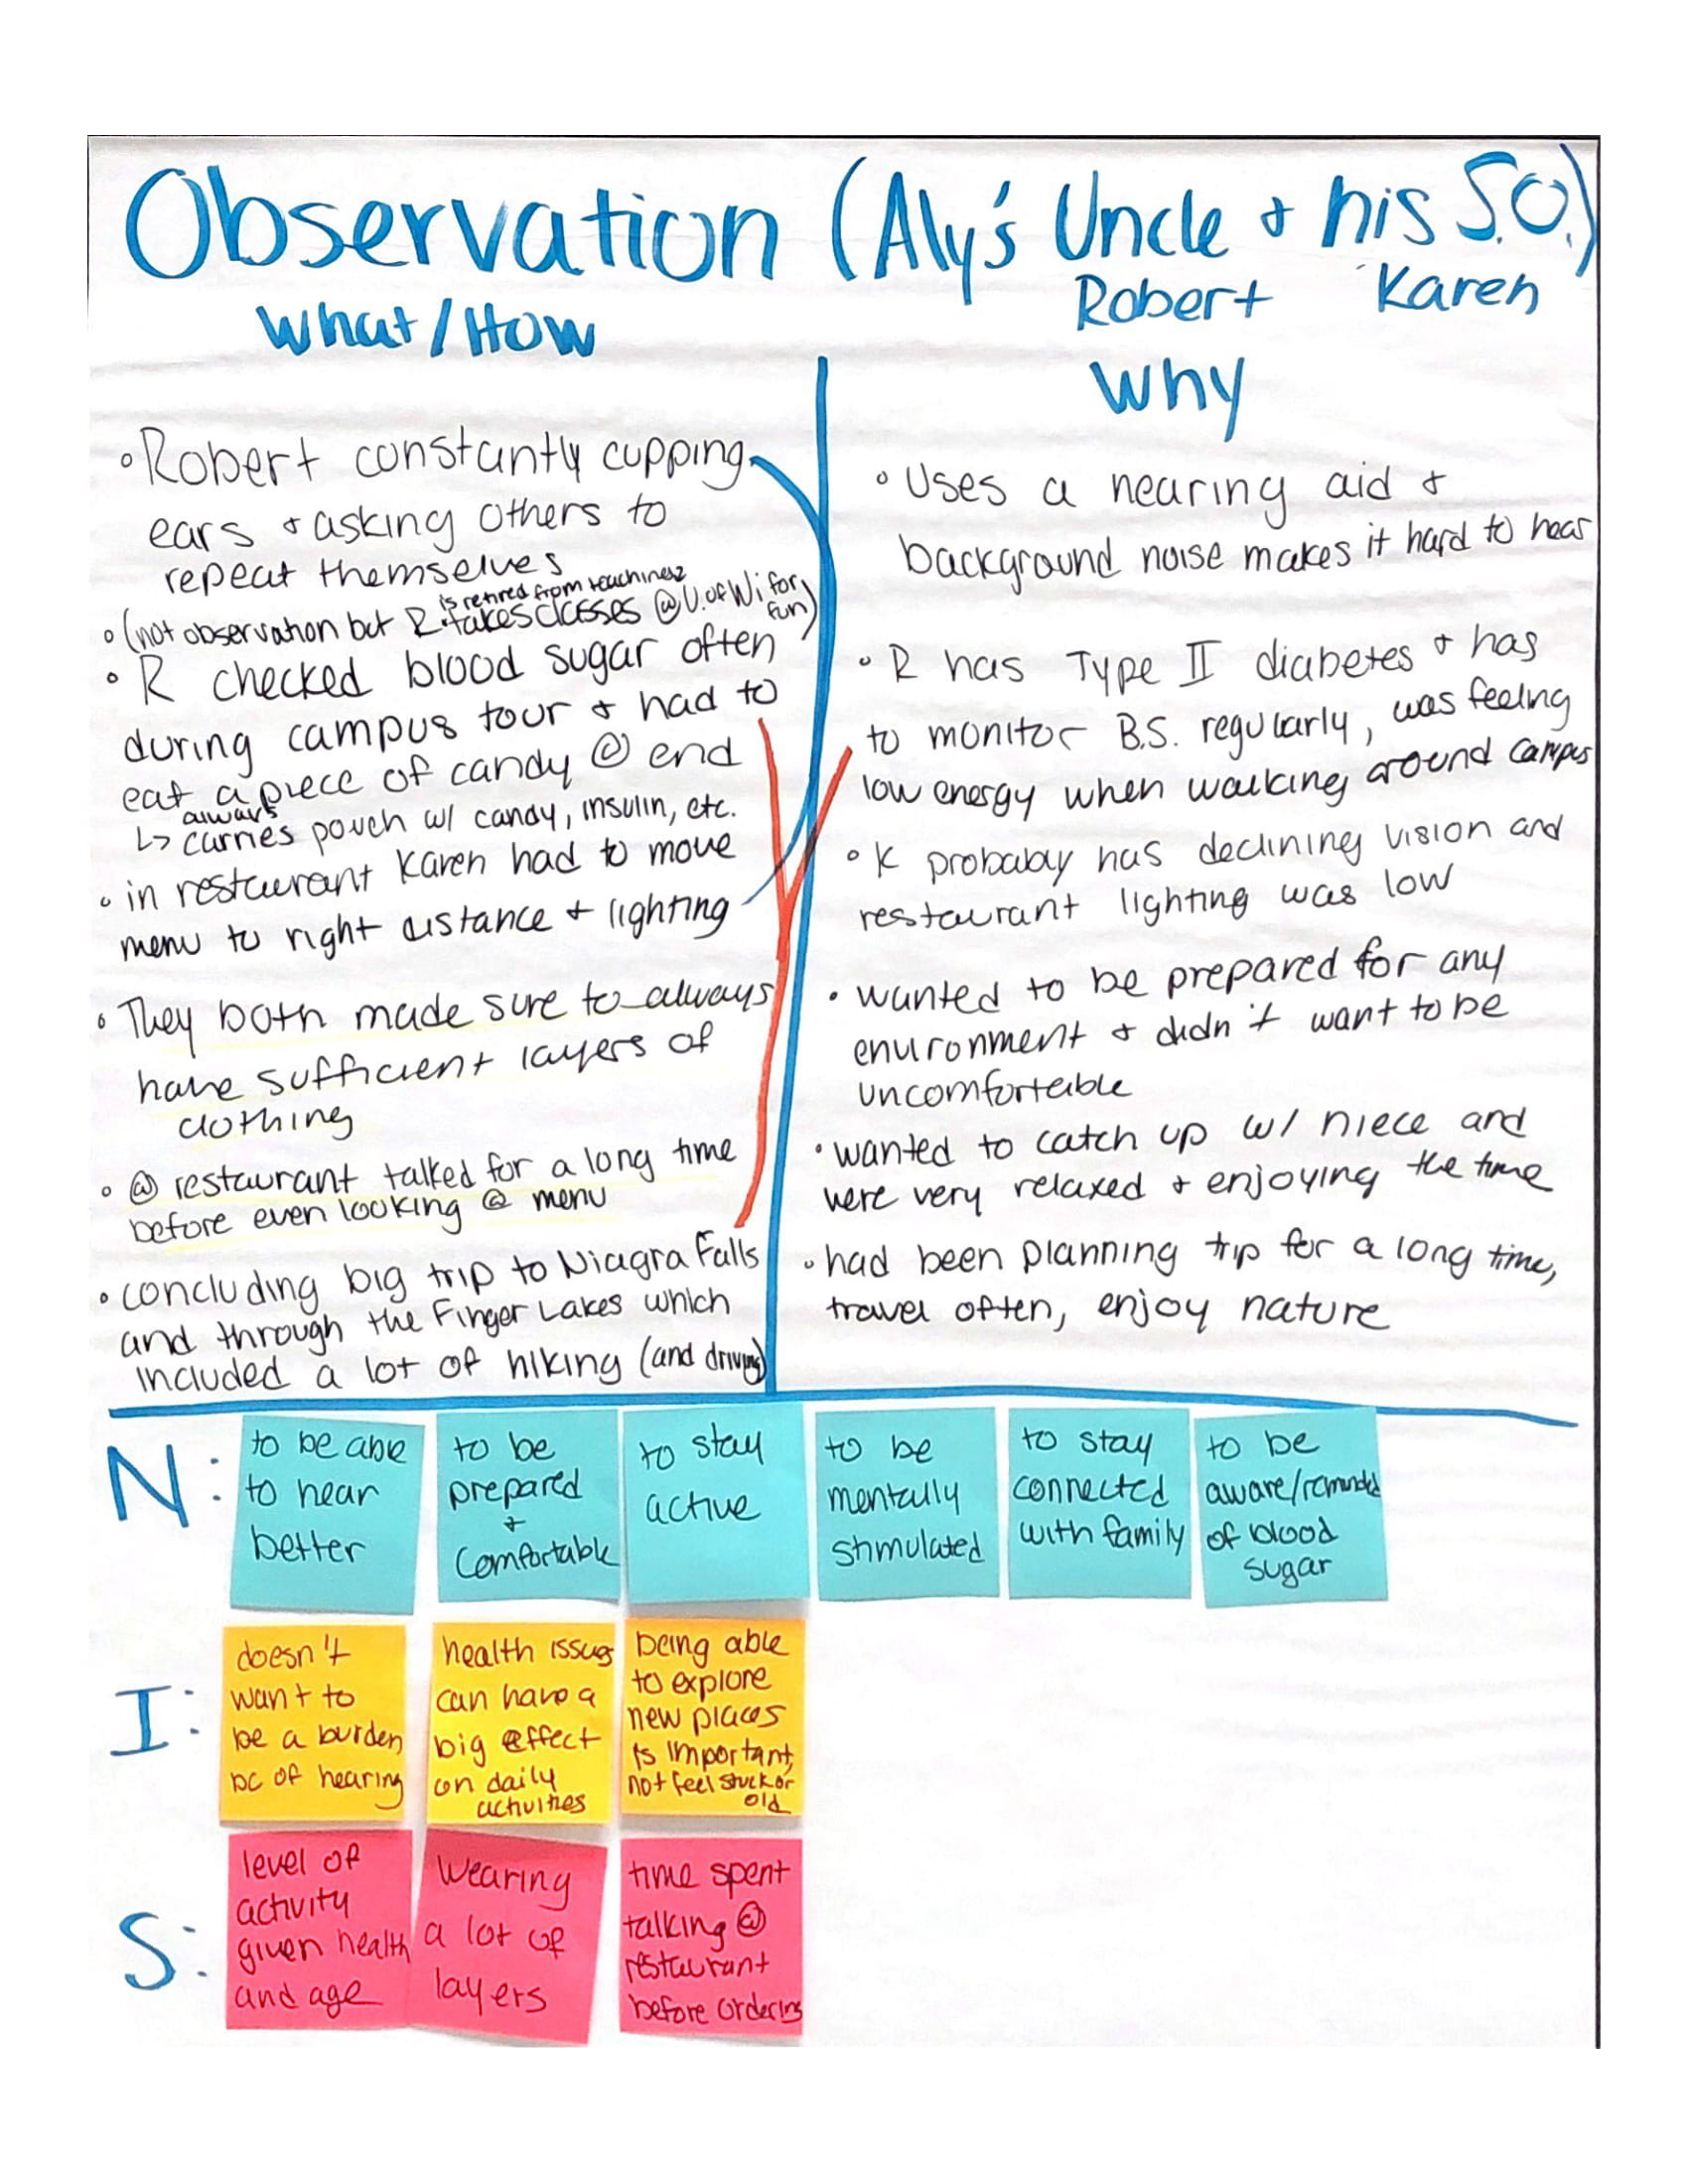 Observation (Aly's Uncle & his S.O.)
Robert Karen
What/How
Why
• Robert constantly cupping
ears & asking others to
repeat themselves
is retired from teaching &
• (not observation but R. takes classes @ U. of Wi for
fun)
• R checked blood sugar often
during campus tour & had to
eat a piece of candy @ end
always
↳ carries pouch w/ candy, insulin, etc.
• in restaurant Karen had to move
menu to right distance & lighting
• They both made sure to always
have sufficient layers of
clothing
• @ restaurant talked for a long time
before even looking @ menu
• concluding big trip to Niagra Falls
and through the Finger Lakes which
included a lot of hiking (and driving)
• Uses a hearing aid &
background noise makes it hard to hear
• R has Type II diabetes & has
to monitor B.S. regularly, was feeling
low energy when walking around campus
• K probably has declining vision and
restaurant lighting was low
• wanted to be prepared for any
environment & didn't want to be
uncomfortable
• wanted to catch up w/ niece and
were very relaxed & enjoying the time
• had been planning trip for a long time,
travel often, enjoy nature
N:
to be able
to hear
better
to be
prepared
+
comfortable
to stay
active
to be
mentally
stimulated
to stay
connected
with family
to be
aware/reminded
of blood
sugar
I:
doesn't
want to
be a burden
bc of hearing
health issues
can have a
big effect
on daily
activities
being able
to explore
new places
is important,
not feel stuck or
old
S:
level of
activity
given health
and age
Wearing
a lot of
layers
time spent
talking @
restaurant
before ordering